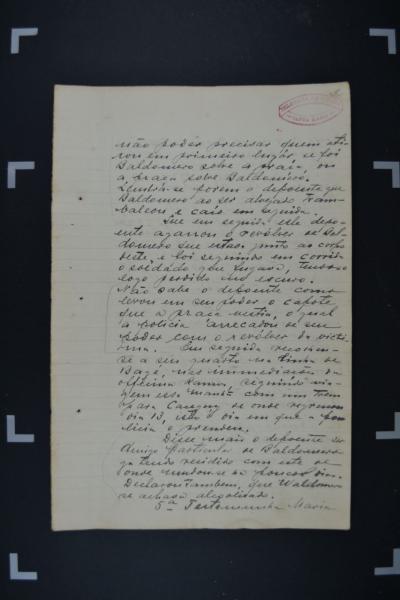 não poder precisar quem ati-
rou em primeiro lugar, se foi
Baldomero sobre a praça, ou
a praça sobre Baldomero.
Lembra-se porem o depoente que
Baldomero ao ser alvejado tram-
baleou e caio em seguida.
Que em seguida elle depo-
ente agarrou o revolver de Bal-
domero que estava junto ao corpo
deste, e foi seguindo em corrida
o soldado que fugava, tendo-o
logo perdido no escuro.
Não sabe o depoente como
levou em seu poder, o capote
que a praça vestia, o qual
a policia arrecadou de seu
poder com o revolver da victi-
ma. Em seguida recolheu-
se a seu quarto na linha de
Bagé, nas immediações da
officina Ramos, seguindo via-
gem essa manhã com um trem
para Cacequy de onde regressou
dia 13, isto é dia em que a po-
licia o prendeu.
Disse mais o depoente ser
amigo particular de Baldomero
ja tendo residido com este de
onde mudou-se ha poucos dias.
Declarou tambem, que Waldome-
se achava alcoolisado.
5a Testemunha Maria